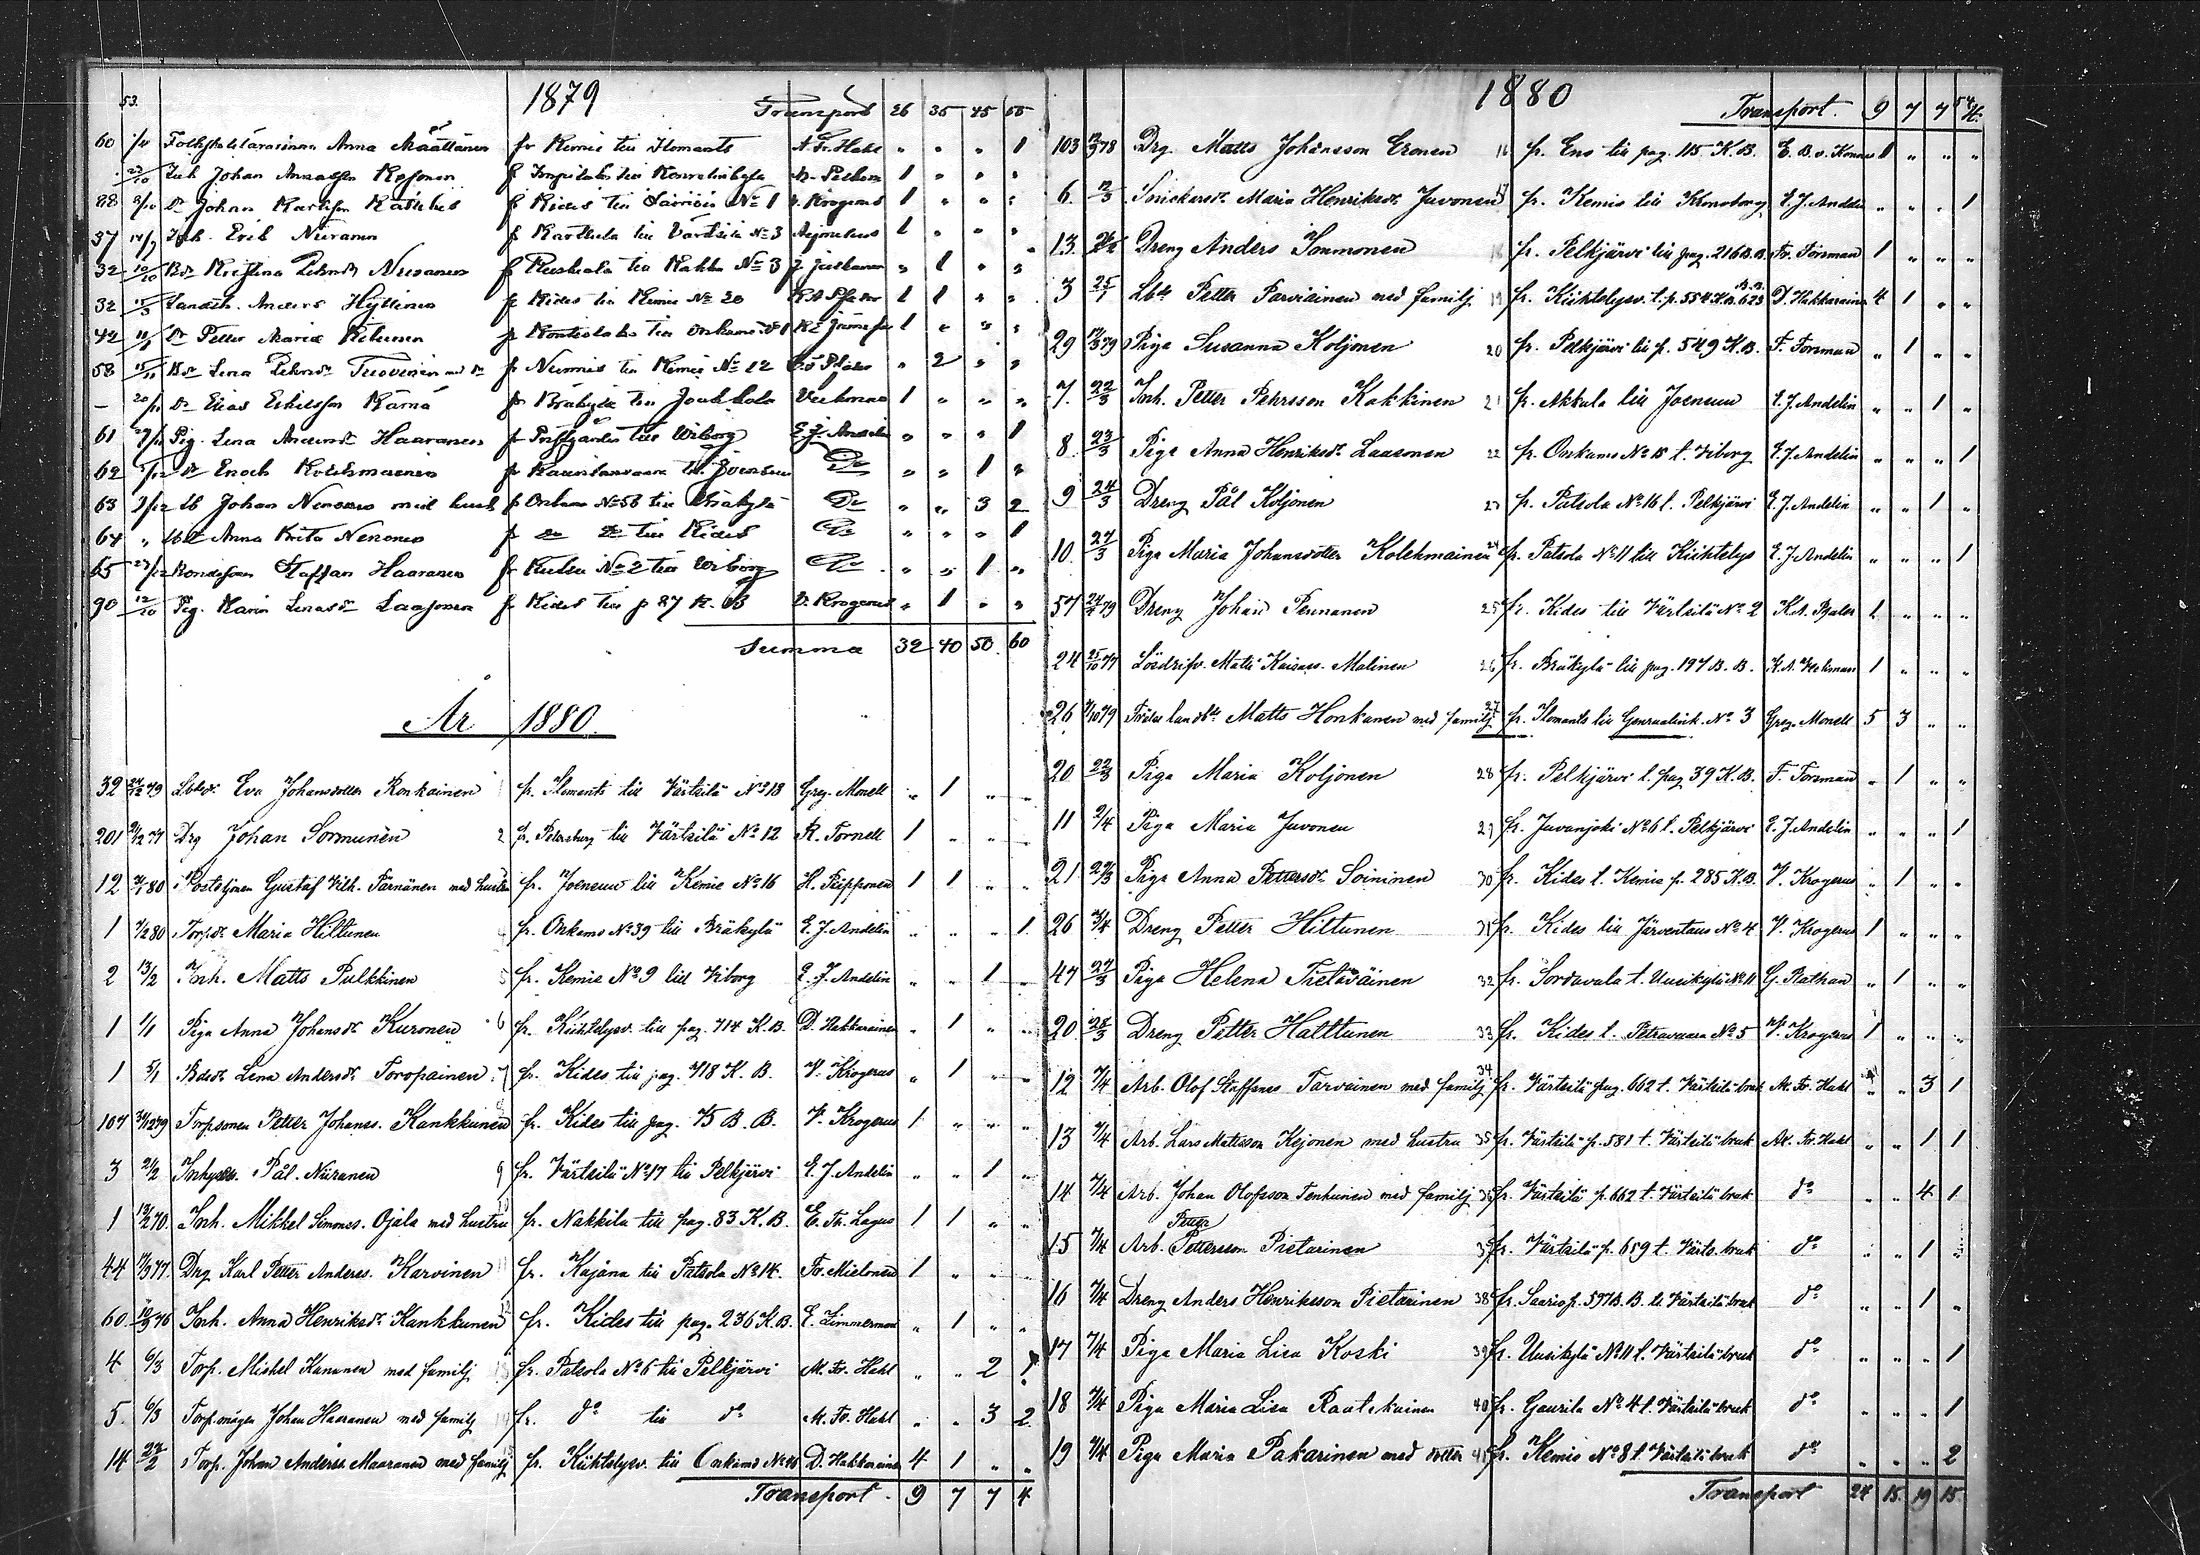 53.
1879
Transport 26 35 45 55
60 Folkskolelärarinnan Anna Määttänen fr Kemie till Ilomants A. Fr. Hahl " " " 1
Inh Johan Kosonen f till 1 " " "
88 Dr Johan Karlsson f Kides till Saarivis No 1 V. Krogerus 1 " " "
37 14/9 Inh. Erik Niiranen f Karttula till Värtsilä No 3 1 " " "
32 10/10 Bdr Kristina Niiranen f Ruskiala till No 3 " 1 " "
32 Landsb. Anders Hyttinen f Kides till Kemie No 20 1 1 " "
42 Dr Petter Maria f Kontiolaks till Onkamo No 1 1 " " "
58 Bdr Lena Tuovinen f Nurmis till Kemie No 12 " 2 " "
– 20/11 Dr Elias Eskelsson Kärnä fr Bräkylä till Joukkola Veckman 1 " " "
61 Pig. Lena Andersdr Haaranen f Prästgården till Wiborg E J Andelin " " " 1
62 Dr Enoch Kolehmainen f till Joensuu Do " " 1 "
63 Lb Johan Nenonen med hust f Onkamo No 56 till Bräkylä Do " " 3 2
64 " Anna Brita Nenonen f do do till Kides Do " " " 1
65 Bondeson Staffan Haaranen f No 2 till Wiborg Do " " 1 "
90 12/10 Pig. Karin Laasonen f Kides till p 87 K. B V. Krogerus " 1 " "
Summa 32 40 50 60
År 1880.
32 79 Lbdr Eva Johansdotter Ronkainen 1 fr. Ilomants till Värtsilä No 18 Greg. Monell " 1 " "
201 77 Drg Johan Sormunen 2 fr. Petersburg till Värtsilä No 12 R. Tornell 1 " " "
12 80 Postiljonen Gustaf Vilh. Tärnänen med hustru fr. Joensuu till Kemie No 16 H. Piipponen 1 1 " "
1 7/2 80 Torpdr Maria Hiltunen 4 fr. Onkamo No 39 till Bräkylä E. J. Andelin " " " 1
2 13/2 Inh. Matts Pulkkinen 5 fr. Kemie No 9 till Viborg E. J. Andelin " " 1 "
1 1/1 Piga Anna Johansdr Kuronen 6 fr. Kiihtelysv. till pag. 714 K. B. D. Hakkarainen " 1 " "
1 5/1 Bdedr Lena Andersdr Toropainen 7 fr. Kides till pag. 718 K. B. V. Krogerus " 1 " "
107 79 Torpsonen Petter Johanss. Kankkunen fr. Kides till pag. 75 B. B. V. Krogerus 1 " " "
3 21/2 Inhyses. Pål. Niiranen 9 fr. Värtsilä No 17 till Pelkjärvi E. J. Andelin " " 1 "
1 Inh. Mikkel Simons. Ojala med hustru fr. Nakkila till pag. 83 K. B. E. Fr. Lagus 1 1 " "
44 77 Drg Karl Petter Anderss. Karvinen fr. Kajana till Patsola No 14. Fr. Mielonen 1 " " "
60 76 Inh. Anna Henriksdr Kankkunen 12 fr. Kides till pag. 236 K. B. E. Limmerman " 1 " "
4 6/3 Torp. Mickel Kanunen med familj 13 fr. Patsola No 6 till Pelkjärvi M. Fr. Hahl " " 2 1
5. 6/3 Torp.mågen Johan Haaranen med familj 14 fr. do till do M. Fr. Hahl " " 3 2
14 22/2 Torp. Johan Anderss. Maaranen med familj fr. Kiihtelysv. till Onkamo No D. Hakkarainen 4 1 " "
Transport 9 7 7 4
1880
Transport. 9 7 7 4
54
103 78 Drg Matts Johansson Eronen 16 fr. Eno till pag. 115 K. B. 1 " " "
6. 12/3 Snickarsdr Maria Henriksdr Juvonen 17 fr. Kemie till Kronoborg E. J. Andelin " " " 1
13. Dreng Anders Sormonen fr. Pelkjärvi till pag. 216 B. B. Fr. Forsman 1 " " "
3 25/1 Lbde Petter Parviainen med familj 19 fr. Kiihtelysv. t. p. 554 K. B. B.B. 623 D. Hakkarainen 4 1 " "
29 79 Piga Susanna Koljonen 20 fr. Pelkjärvi till p. 549 K. B. F. Forsman " 1 " "
7. 22/3 Inh. Petter Pehrsson Kakkinen 21 fr. Akkala till Joensuu E. J. Andelin " " 1 "
8. 23/3 Piga Anna Henriksdr Laasonen 22 fr. Onkamo No 15 t. Viborg E. J. Andelin " " " 1
9 24/3 Dreng Pål Koljonen 23 fr. Patsola No 16 t. Pelkjärvi E. J. Andelin " " 1 "
10. 27/3 Piga Maria Johansdotter Kolehmainen 24 fr. Patsola No 11 till Kiihtelys E. J. Andelin " " " 1
57 79 Dreng Johan Pennanen 25 fr. Kides till Värtsilä No 2 1 " " "
24 77 Lösdrifv. Matts Kaisas. Malinen 26 fr. Bräkylä till pag. 197 B. B. K. A. Veckman 1 " " "
26 79 Födes landbde Matts Honkanen med familj 27 fr. Ilomants till No 3 Greg. Monell 5 3 " "
20 22/3 Piga Maria Koljonen 28 fr. Pelkjärvi t. pag 39 K. B. F. Forsman " 1 " "
11 2/4 Piga Maria Juvonen 29 fr. Juvanjoki No 6 t. Pelkjärvi E. J. Andelin " " " 1
21 22/3 Piga Anna Pettersdr Soininen 30 fr. Kides t. Kemie p. 285 K. B. V. Krogerus " 1 " "
26 3/4 Dreng Petter Hiltunen 31 fr. Kides till Järventaus No 4 V. Krogerus 1 " " "
47 27/3 Piga Helena Tietäväinen 32 fr. Sordavala t. Uusikylä No 11 G. Rathan " 1 " "
20 28/3 Dreng Petter Halttunen 33 fr. Kides t. Petravaara No 5 V. Krogerus 1 " " "
12 7/4 Arb. Olof Staffans Tarvainen med familj 34 fr. Värtsilä pag. 662 t. Värtsilä bruk M. Fr. Hahl " " 3 1
13 7/4 Arb. Lars Matsson Kejonen med hustru 35 fr. Värtsilä p. 581 t. Värtsilä bruk M. Fr. Hahl " " 1 1
14 7/4 Arb. Johan Olofsson Tenhunen med familj 36 fr. Värtsilä p. 662 t. Värtsilä bruk do " " 4 1
Petter
15 7/4 Arb. Pettersson Pietarinen 37 fr. Värtsilä p. 659 t. Värts. bruk do " " 1 "
16 7/4 Dreng Anders Henriksson Pietarinen 38 fr. Saario p. 597 B. B. t. Värtsilä bruk do " " 1 "
17 7/4 Piga Maria Lisa Koski 39 fr. Uusikylä No 11 t. Värtsilä bruk do " " " 1
18 7/4 Piga Maria Lisa Rautiainen 40 fr. Gaurila No 4 t. Värtsilä bruk do " " " 1
19 7/4 Piga Maria Pakarinen med dotter 41 fr. Kemie No 8 t. Värtsilä bruk do " " " 2
Transport 24 15 19 15